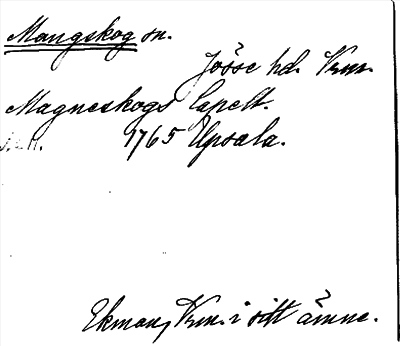 Mangskog sn.
Jösse hd. Vrm.
Magneskogs Capell.
1765 Upsala.
Ekman, Vrm. i sitt ämne.